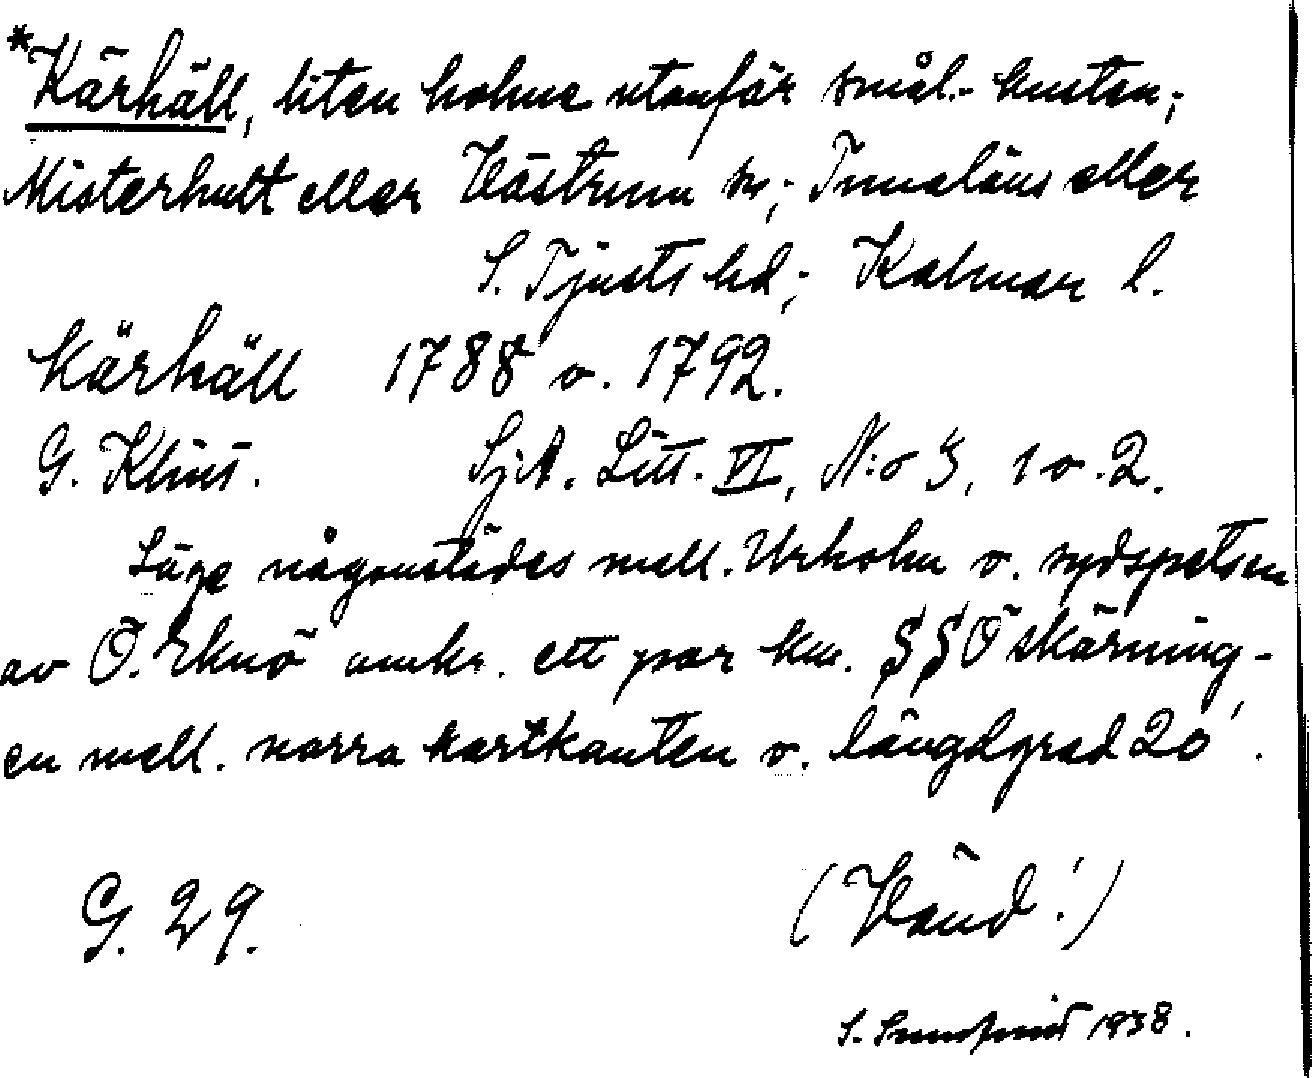 *Kärhäll, liten holme utanför smål.-kusten;
Misterhult eller Västrum sn; Tunaläns eller
S. Tjusts hd; Kalmar l.
Kärhäll 1788 o. 1792.
G. Klint. SjA. Litt. VI, N:o 3, 1 o. 2.
Läge någonstädes mell. Urholm o. sydspetsen
av Ö. Eknö omkr. ett par km. SSÖ skärning-
en mell. norra kartkanten o. längdgrad 20'.
G. 29. (Vänd!)
S. 1938.